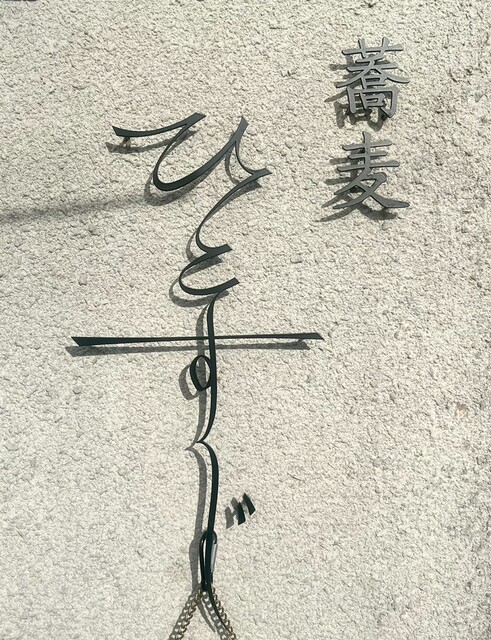 蕎麦
ひとすじ